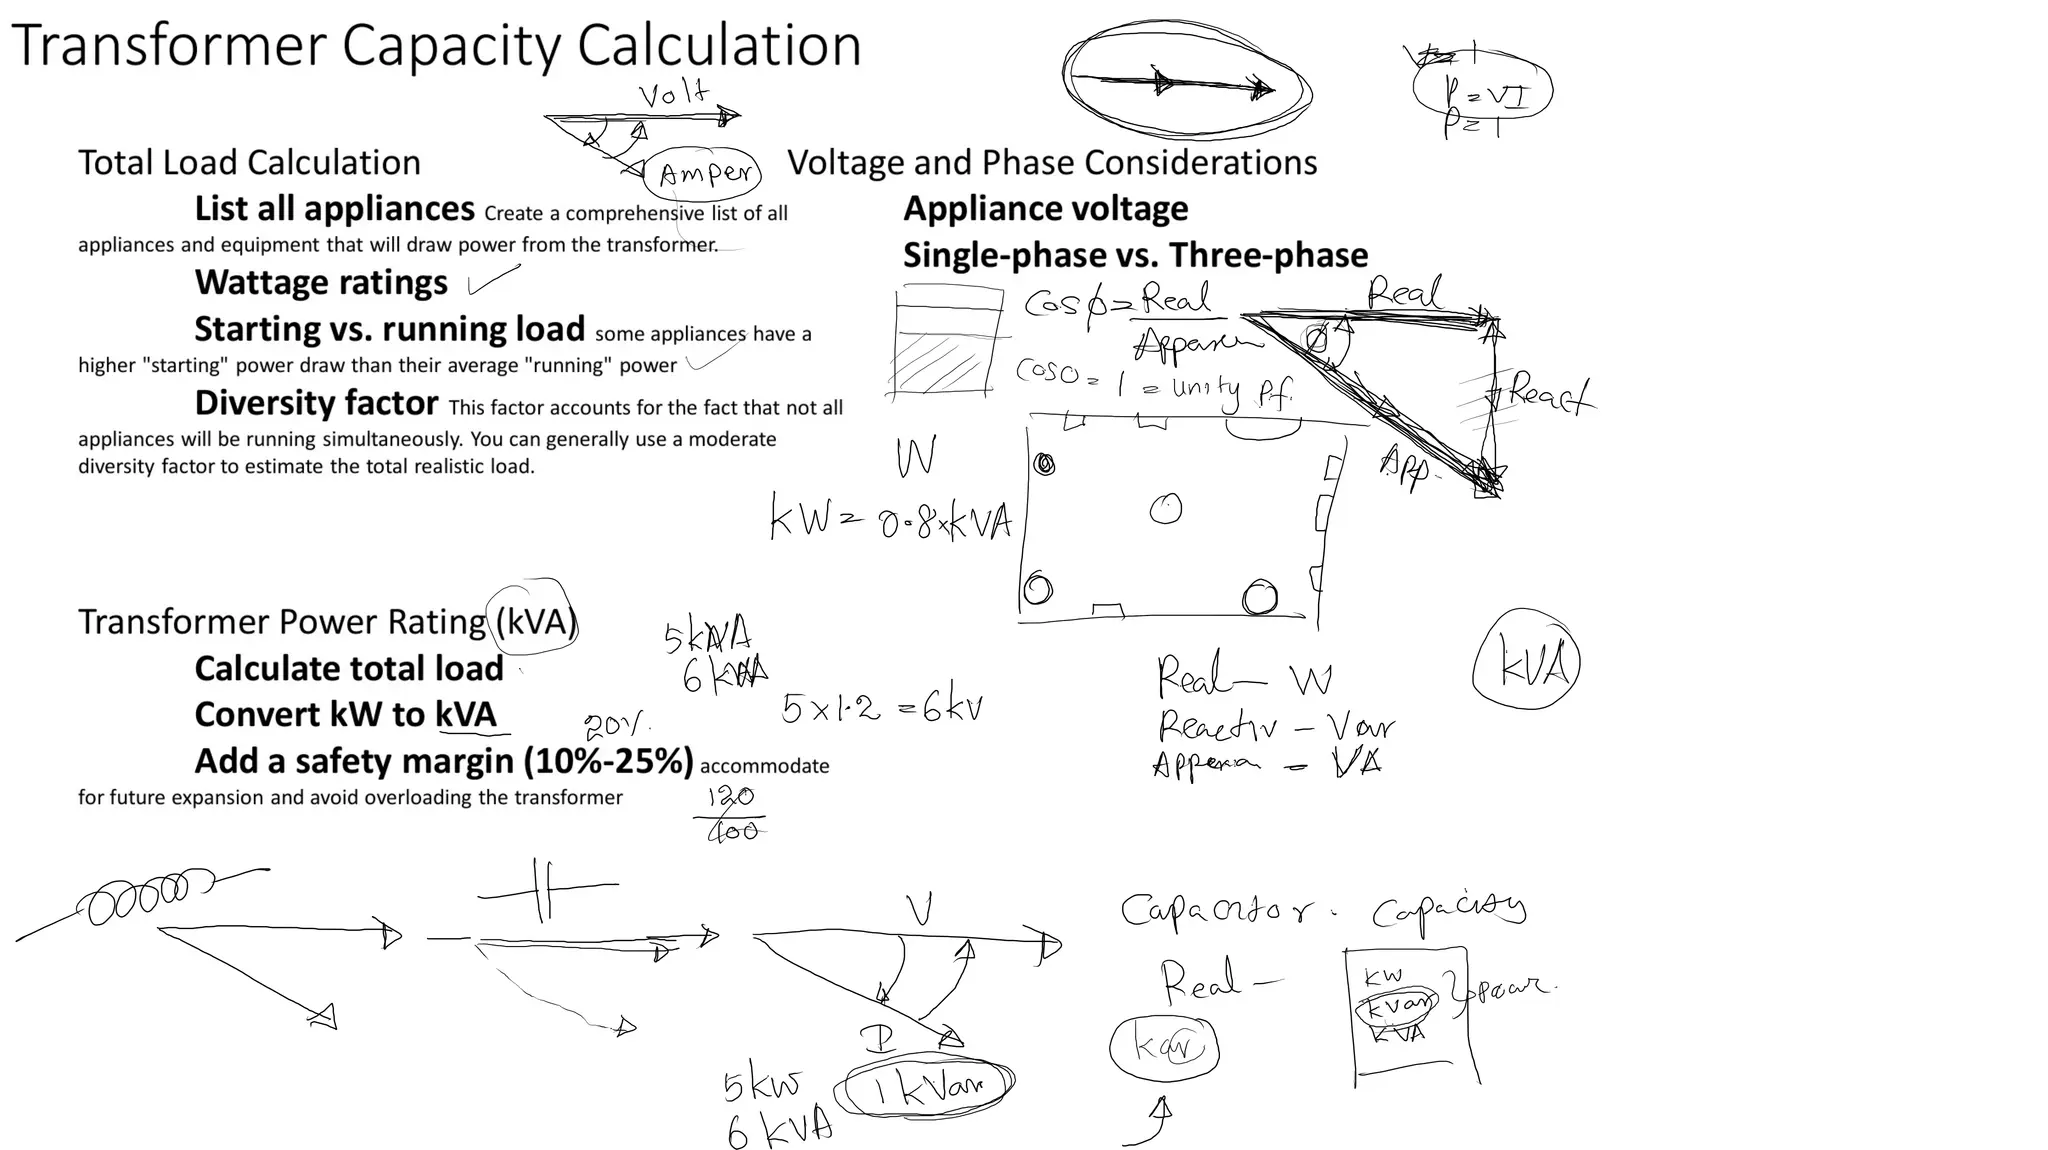 Transformer Capacity Calculation
Volt
Amper
P = VI
P = 1
Total Load Calculation
List all appliances Create a comprehensive list of all
appliances and equipment that will draw power from the transformer.
Wattage ratings
Starting vs. running load some appliances have a
higher "starting" power draw than their average "running" power
Diversity factor This factor accounts for the fact that not all
appliances will be running simultaneously. You can generally use a moderate
diversity factor to estimate the total realistic load.
Voltage and Phase Considerations
Appliance voltage
Single-phase vs. Three-phase
Cos ϕ = Real
Real
ϕ
cos 0 = 1 = unity Pf.
React
App.
W
kW = 0.8 x kVA
Transformer Power Rating (kVA)
Calculate total load
Convert kW to kVA
Add a safety margin (10%-25%) accommodate
for future expansion and avoid overloading the transformer
20%
120
100
5 x 1.2 = 6 kv
Real — W
Reactiv — Var
= VA
kVA
V
I
5 kw
1 kVar
6 kVA
Capacitor. Capacity
Real —
kW
kVar
KVA